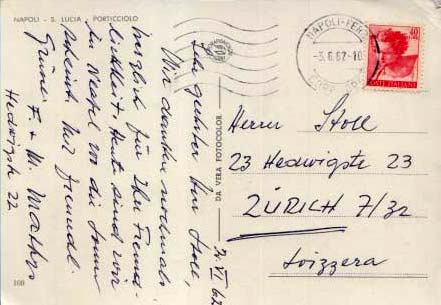 NAPOLI - S. LUCIA - PORTICCIOLO
2. VI 62
Sehr geehrter Herr Stoll,
Wir danken nochmals
herzlich für Ihre Freund-
lichkeit. Heute sind wir
in Neapel wo die Sonne
scheint. Mit freundl.
Grüssen F. + M. Mathys
Hedwigstr 22
100
DA VERA FOTOCOLOR
NAPOLI-FERR
-3.6.62-10
40
POSTE ITALIANE
Herrn Stoll
23 Hedwigstr 23
ZÜRICH 7/32
Svizzera